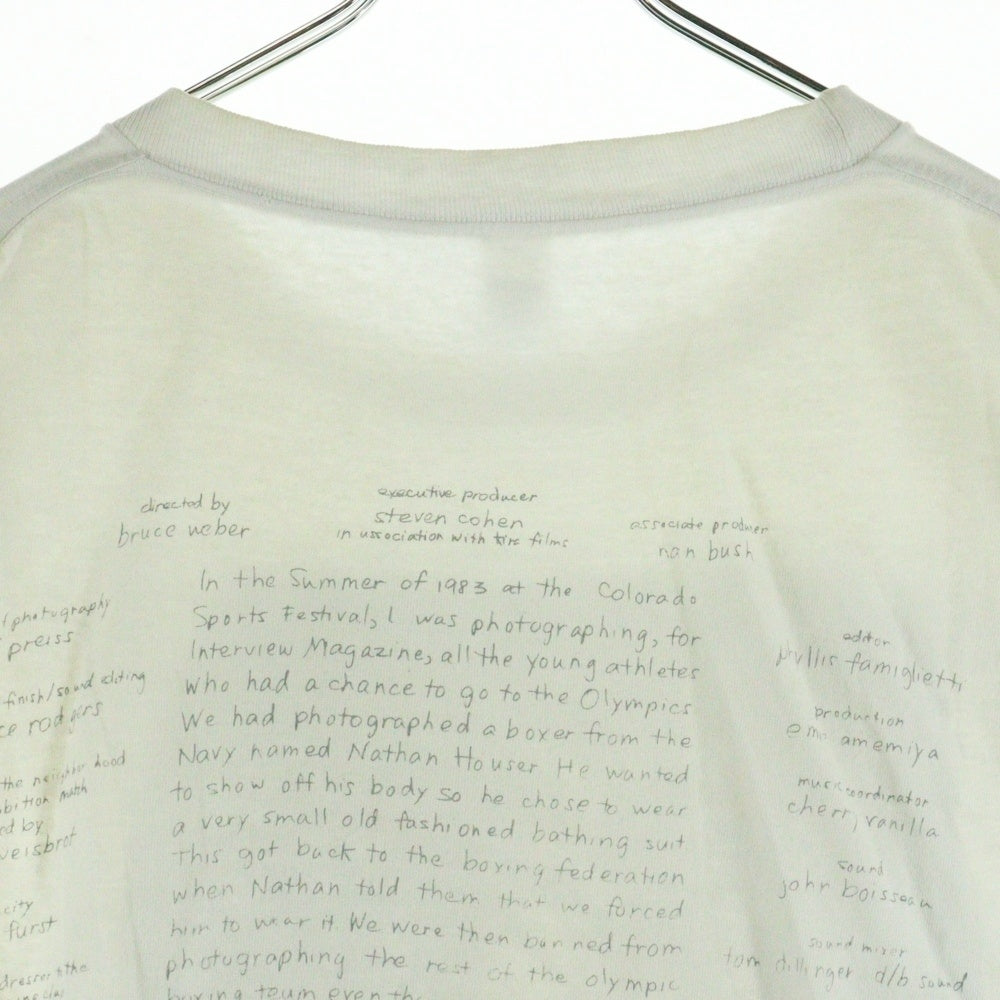 directed by
bruce weber
executive producer
steven cohen
in association with films
associate producer
nan bush
In the Summer of 1983 at the Colorado
Sports Festival, I was photographing, for
Interview Magazine, all the young athletes
who had a chance to go to the Olympics
We had photographed a boxer from the
Navy named Nathan Houser He wanted
to show off his body so he chose to wear
a very small old fashioned bathing suit
This got back to the boxing federation
when Nathan told them that we forced
him to wear it. We were then banned from
photographing the rest of the olympic
boxing team even
photography
preiss
finish/sound editing
rodgers
the neighborhood
match
ed by
weisbrot
city
furst
dresser & the
editor
phyllis famiglietti
production
emi amemiya
music coordinator
cherry vanilla
sound
john boisseau
sound mixer
tom dillinger d/b sound